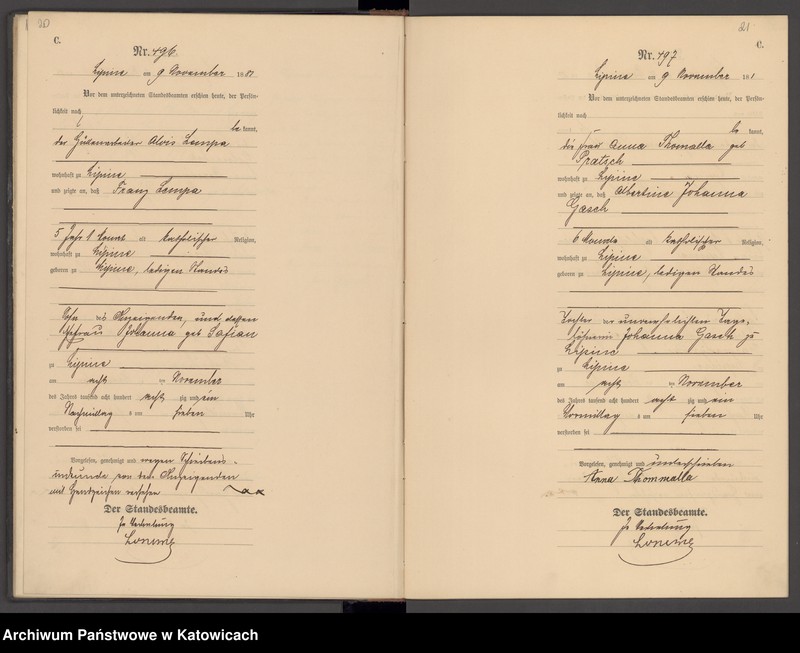 20
C.
Nr. 496
Lipine am 9 November 1881
Vor dem unterzeichneten Standesbeamten erschien heute, der Persön-
lichkeit nach
be kannt,
der Hüttenarbeiter Alois Lempa
wohnhaft zu Lipine
und zeigte an, daß Franz Lempa
5 Jahr 1 Monat alt katholischer Religion,
wohnhaft zu Lipine
geboren zu Lipine, ledigen Standes
Sohn des Anzeigenden, und dessen
Ehefrau Johanna geb Safian
zu Lipine
am acht ten November
des Jahres tausend acht hundert acht zig und ein
Nachmittag s um sieben Uhr
verstorben sei
Vorgelesen, genehmigt und wegen Schreibens-
unkunde von dem Anzeigenden
mit Handzeichen versehen xxx
Der Standesbeamte.
In Vertretung
21
C.
Nr. 497
Lipine am 9 November 1881
Vor dem unterzeichneten Standesbeamten erschien heute, der Persön-
lichkeit nach
be kannt,
die Frau Anna Thomalla geb
Pratsch
wohnhaft zu Lipine
und zeigte an, daß Albertine Johanna
Gasch
6 Monate alt katholischer Religion,
wohnhaft zu Lipine
geboren zu Lipine, ledigen Standes
Tochter der unverehelichten Tage-
löhnerin Johanna Gasch zu
Lipine
zu Lipine
am acht ten November
des Jahres tausend acht hundert acht zig und ein
Vormittag s um sieben Uhr
verstorben sei
Vorgelesen, genehmigt und unterschrieben
Anna Thommalla
Der Standesbeamte.
In Vertretung
Archiwum Państwowe w Katowicach